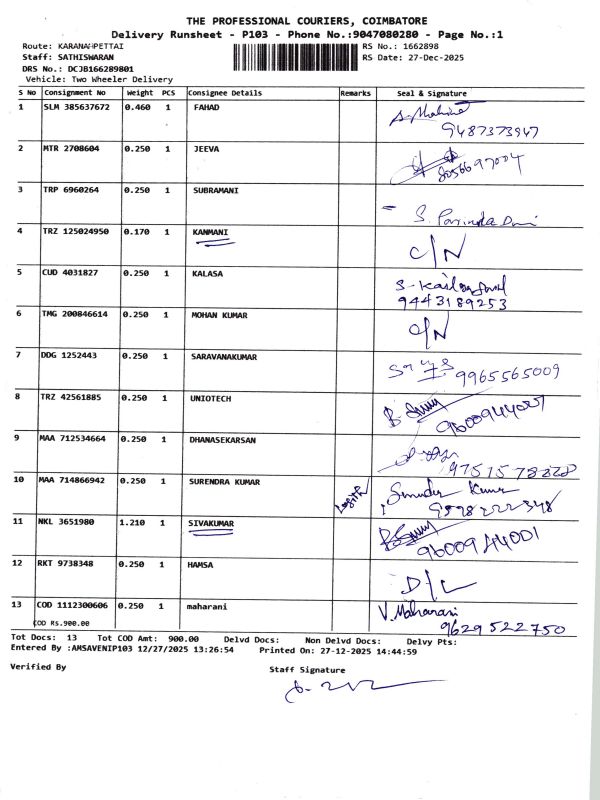 THE PROFESSIONAL COURIERS, COIMBATORE
Delivery Runsheet - P103 - Phone No.:9047080280 - Page No.:1
Route: KARANAMPETTAI RS No.: 1662898
Staff: SATHISWARAN RS Date: 27-Dec-2025
DRS No.: DCJB166289801
Vehicle: Two Wheeler Delivery
S No Consignment No Weight PCS Consignee Details Remarks Seal & Signature
1 SLM 385637672 0.460 1 FAHAD
9487373947
2 MTR 2708604 0.250 1 JEEVA
8056697004
3 TRP 6960264 0.250 1 SUBRAMANI
4 TRZ 125024950 0.170 1 KANMANI C/N
5 CUD 4031827 0.250 1 KALASA
9443189253
6 TMG 200846614 0.250 1 MOHAN KUMAR C/N
7 DDG 1252443 0.250 1 SARAVANAKUMAR
9965565009
8 TRZ 42561885 0.250 1 UNIOTECH
9 MAA 712534664 0.250 1 DHANASEKARSAN
10 MAA 714866942 0.250 1 SURENDRA KUMAR
11 NKL 3651980 1.210 1 SIVAKUMAR
9600944001
12 RKT 9738348 0.250 1 HAMSA D/L
13 COD 1112300606 0.250 1 maharani V. Maharani
COD RS.900.00 9629522750
Tot Docs: 13 Tot COD Amt: 900.00 Delvd Docs: Non Delvd Docs: Delvy Pts:
Entered By :AMSAVENIP103 12/27/2025 13:26:54 Printed On: 27-12-2025 14:44:59
Verified By Staff Signature